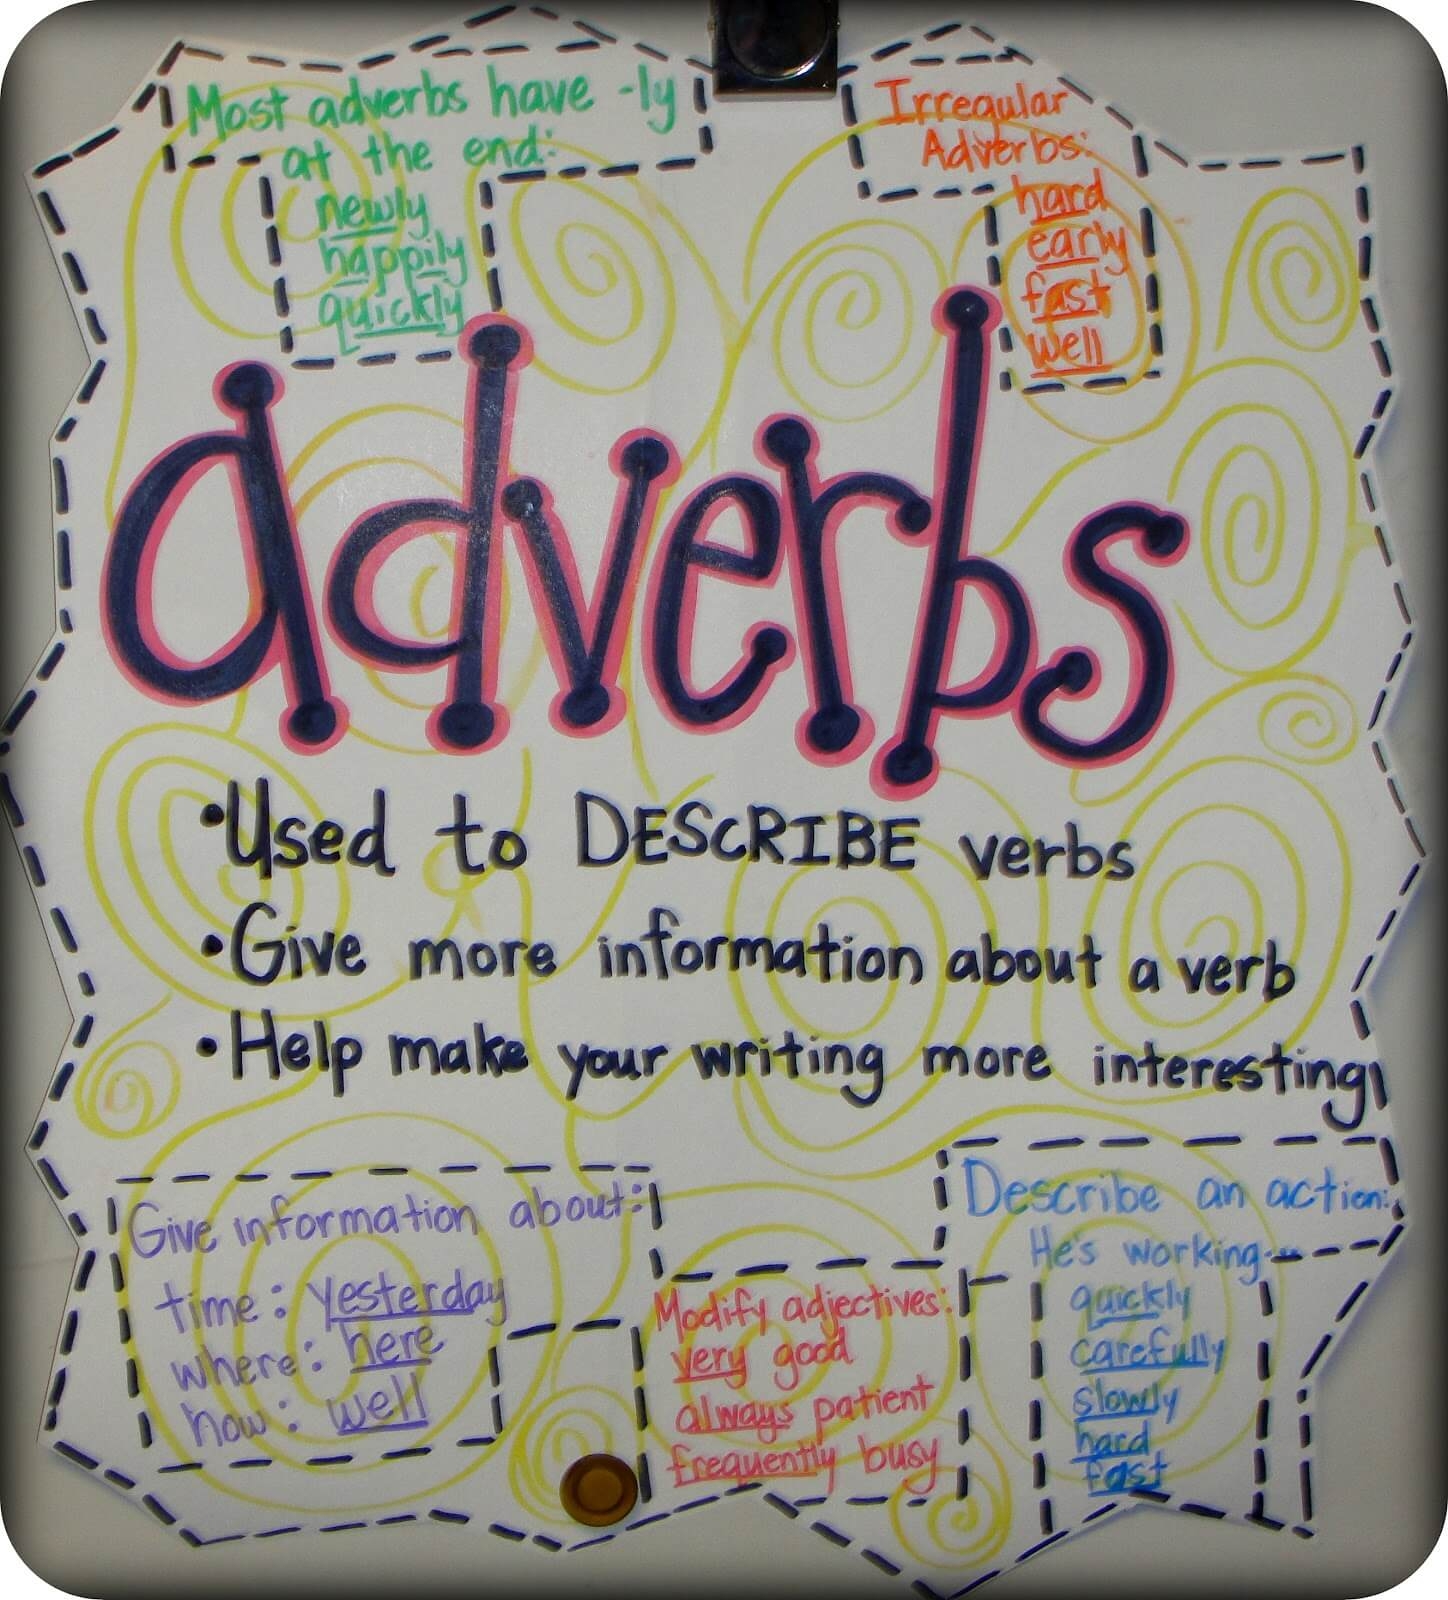 Most adverbs have -ly
at the end:
newly
happily
quickly
Irregular
Adverbs:
hard
early
fast
well
adverbs
•Used to DESCRIBE verbs
•Give more information about a verb
•Help make your writing more interesting
Give information about:
time: yesterday
where: here
how: well
Modify adjectives:
very good
always patient
frequently busy
Describe an action:
He's working...
quickly
carefully
slowly
hard
fast